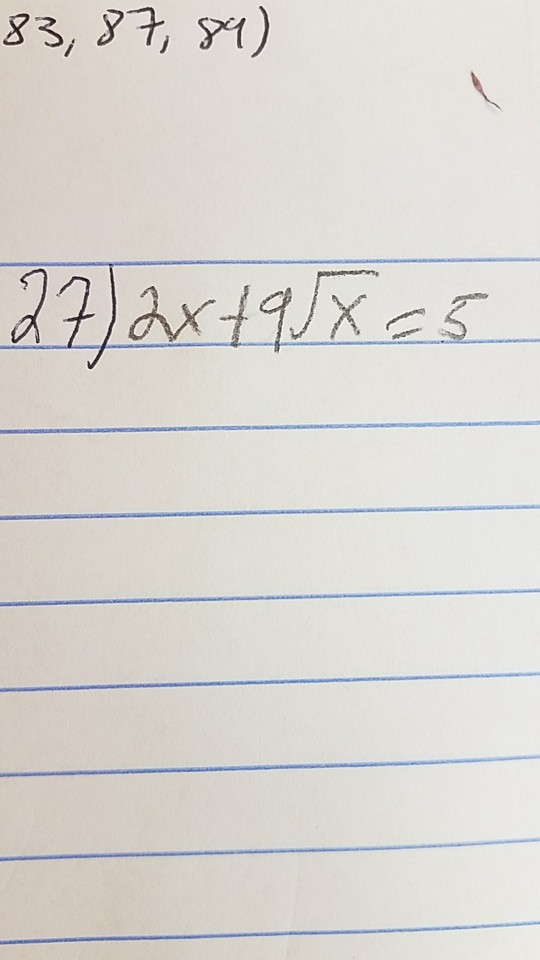 83, 87, 89)
27) 2x+9√x = 5